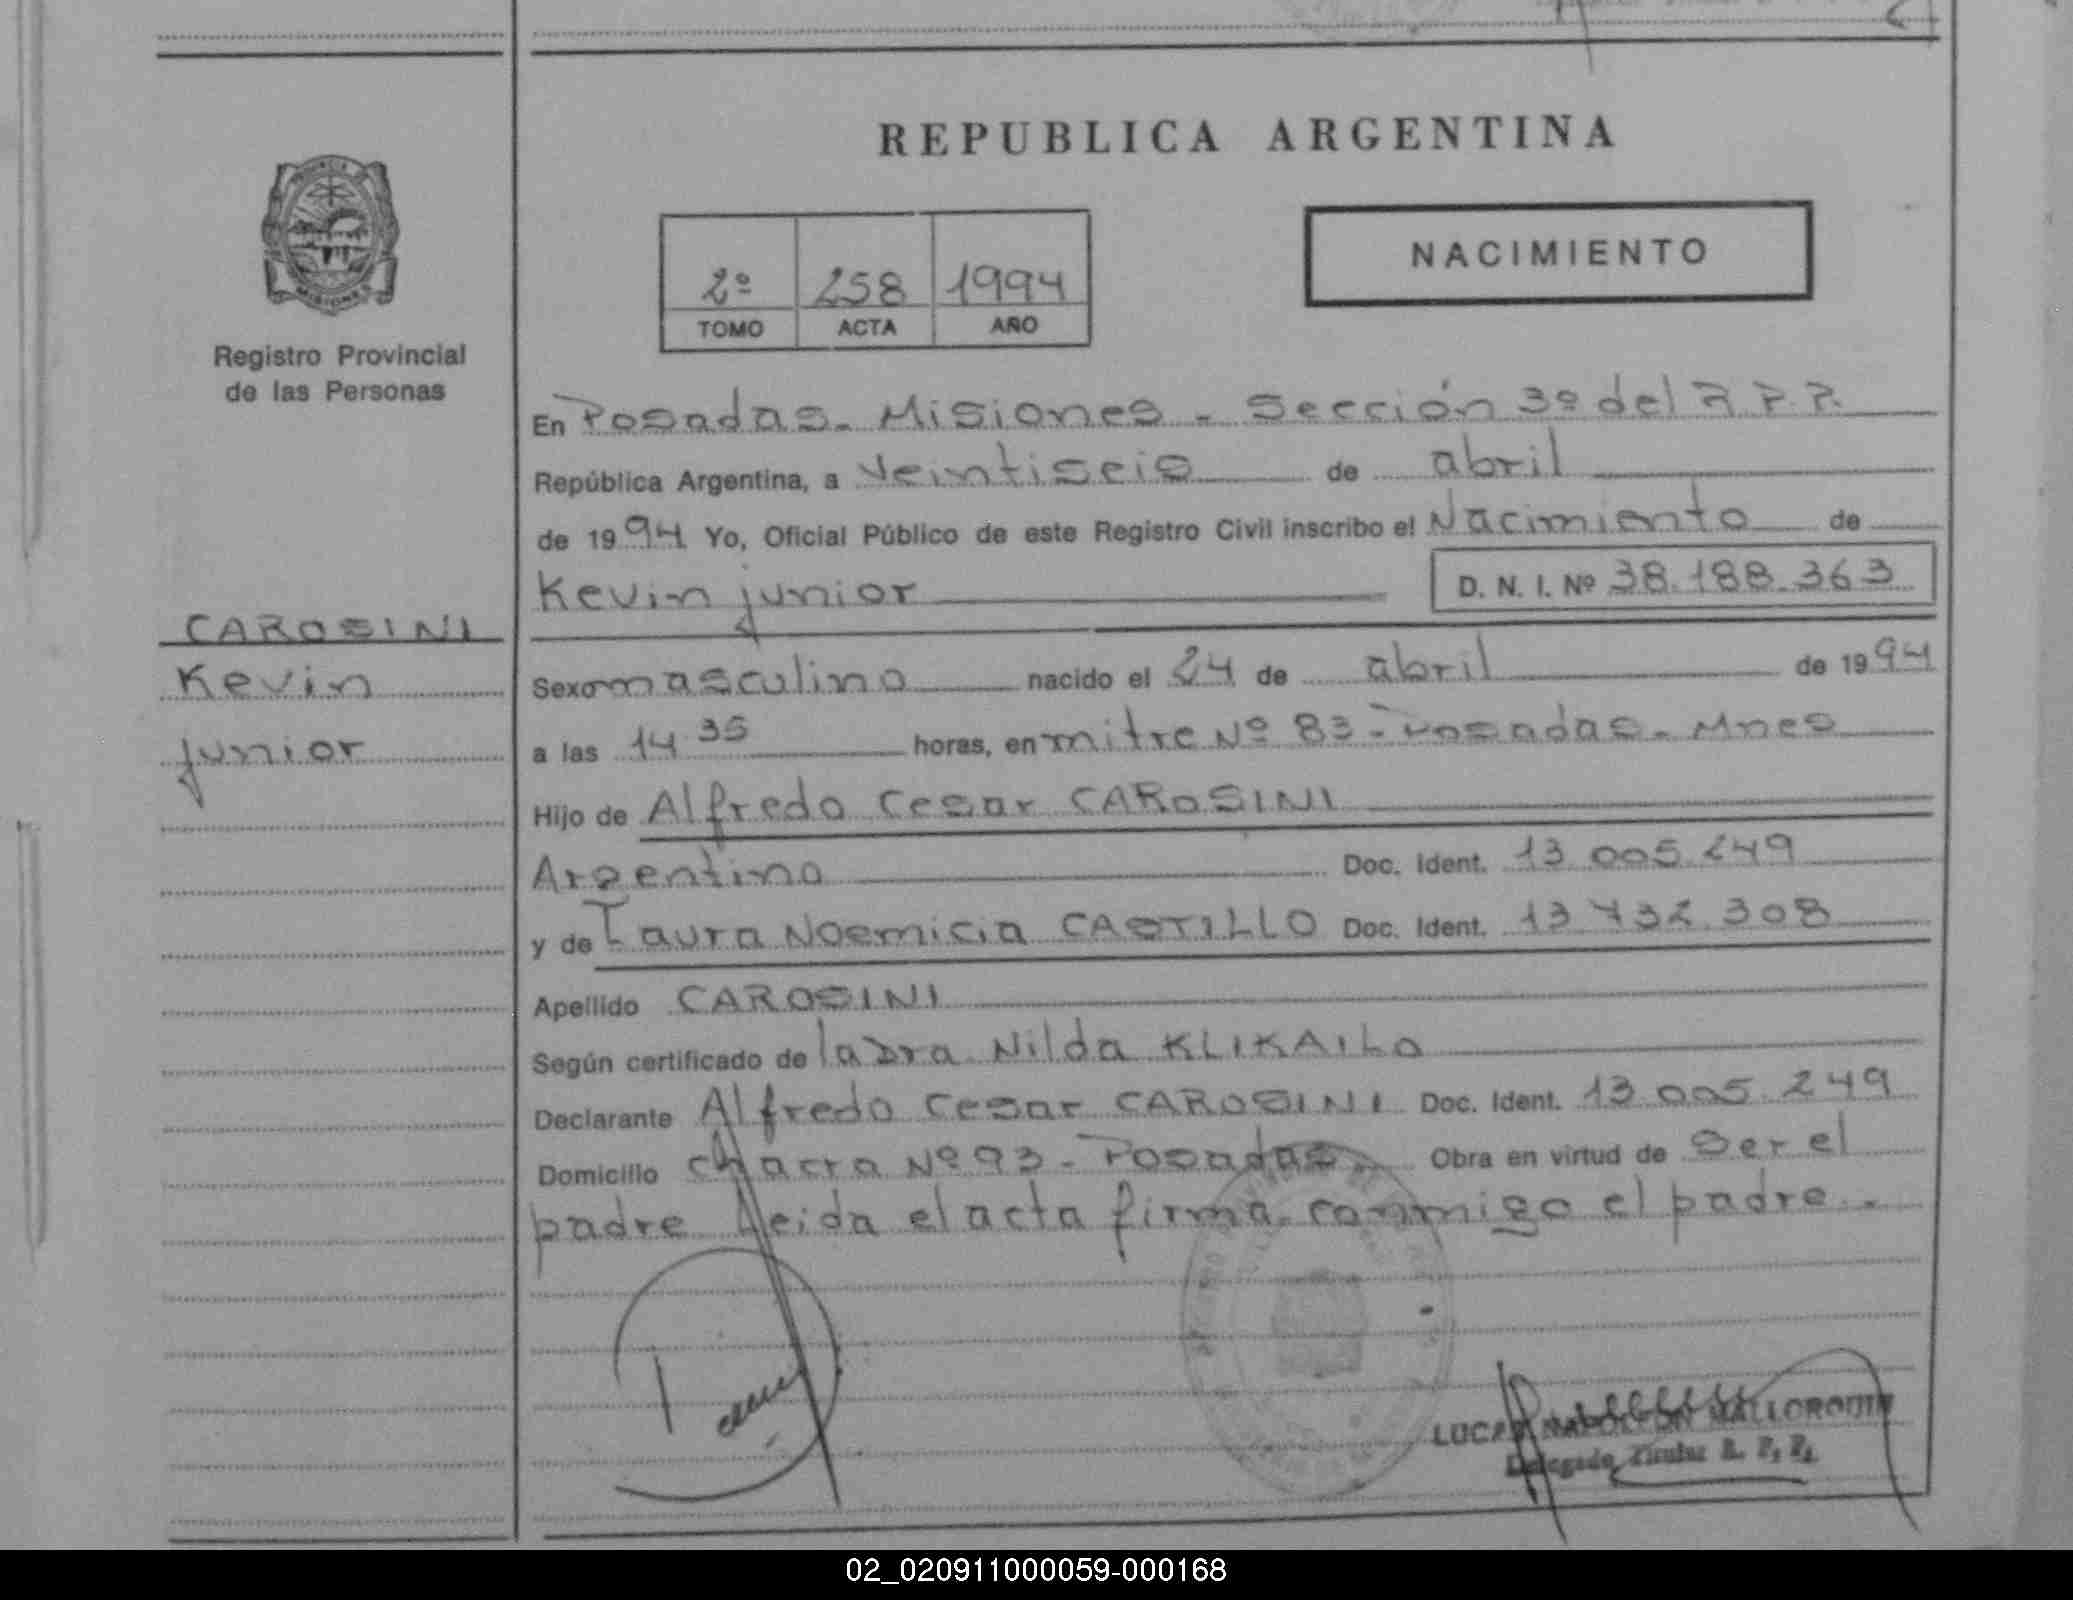 REPUBLICA ARGENTINA
NACIMIENTO
2º 258 1994
TOMO ACTA AÑO
PROVINCIA
MISIONES
Registro Provincial
de las Personas
CAROSINI
Kevin
junior
En Posadas - Misiones - Sección 3º del R.P.P.
República Argentina, a veintiseis de abril
de 1994 Yo, Oficial Público de este Registro Civil inscribo el Nacimiento de
Kevin junior D. N. I. Nº 38.188.363
Sexo masculino nacido el 24 de abril de 1994
a las 14 35 horas, en mitre Nº 83 - Posadas - Mnes
Hijo de Alfredo Cesar CAROSINI
Argentino Doc. Ident. 13.005.249
y de Laura Noemicia CASTILLO Doc. Ident. 13.732.308
Apellido CAROSINI
Según certificado de la Dra Nilda KLIKAILO
Declarante Alfredo Cesar CAROSINI Doc. Ident. 13.005.249
Domicilio chacra Nº 93 - Posadas Obra en virtud de ser el
padre Leida el acta firma conmigo el padre.
LUCAS NAPOLEON MALLORQUIN
Delegado Titular R. P. P.
02_020911000059-000168